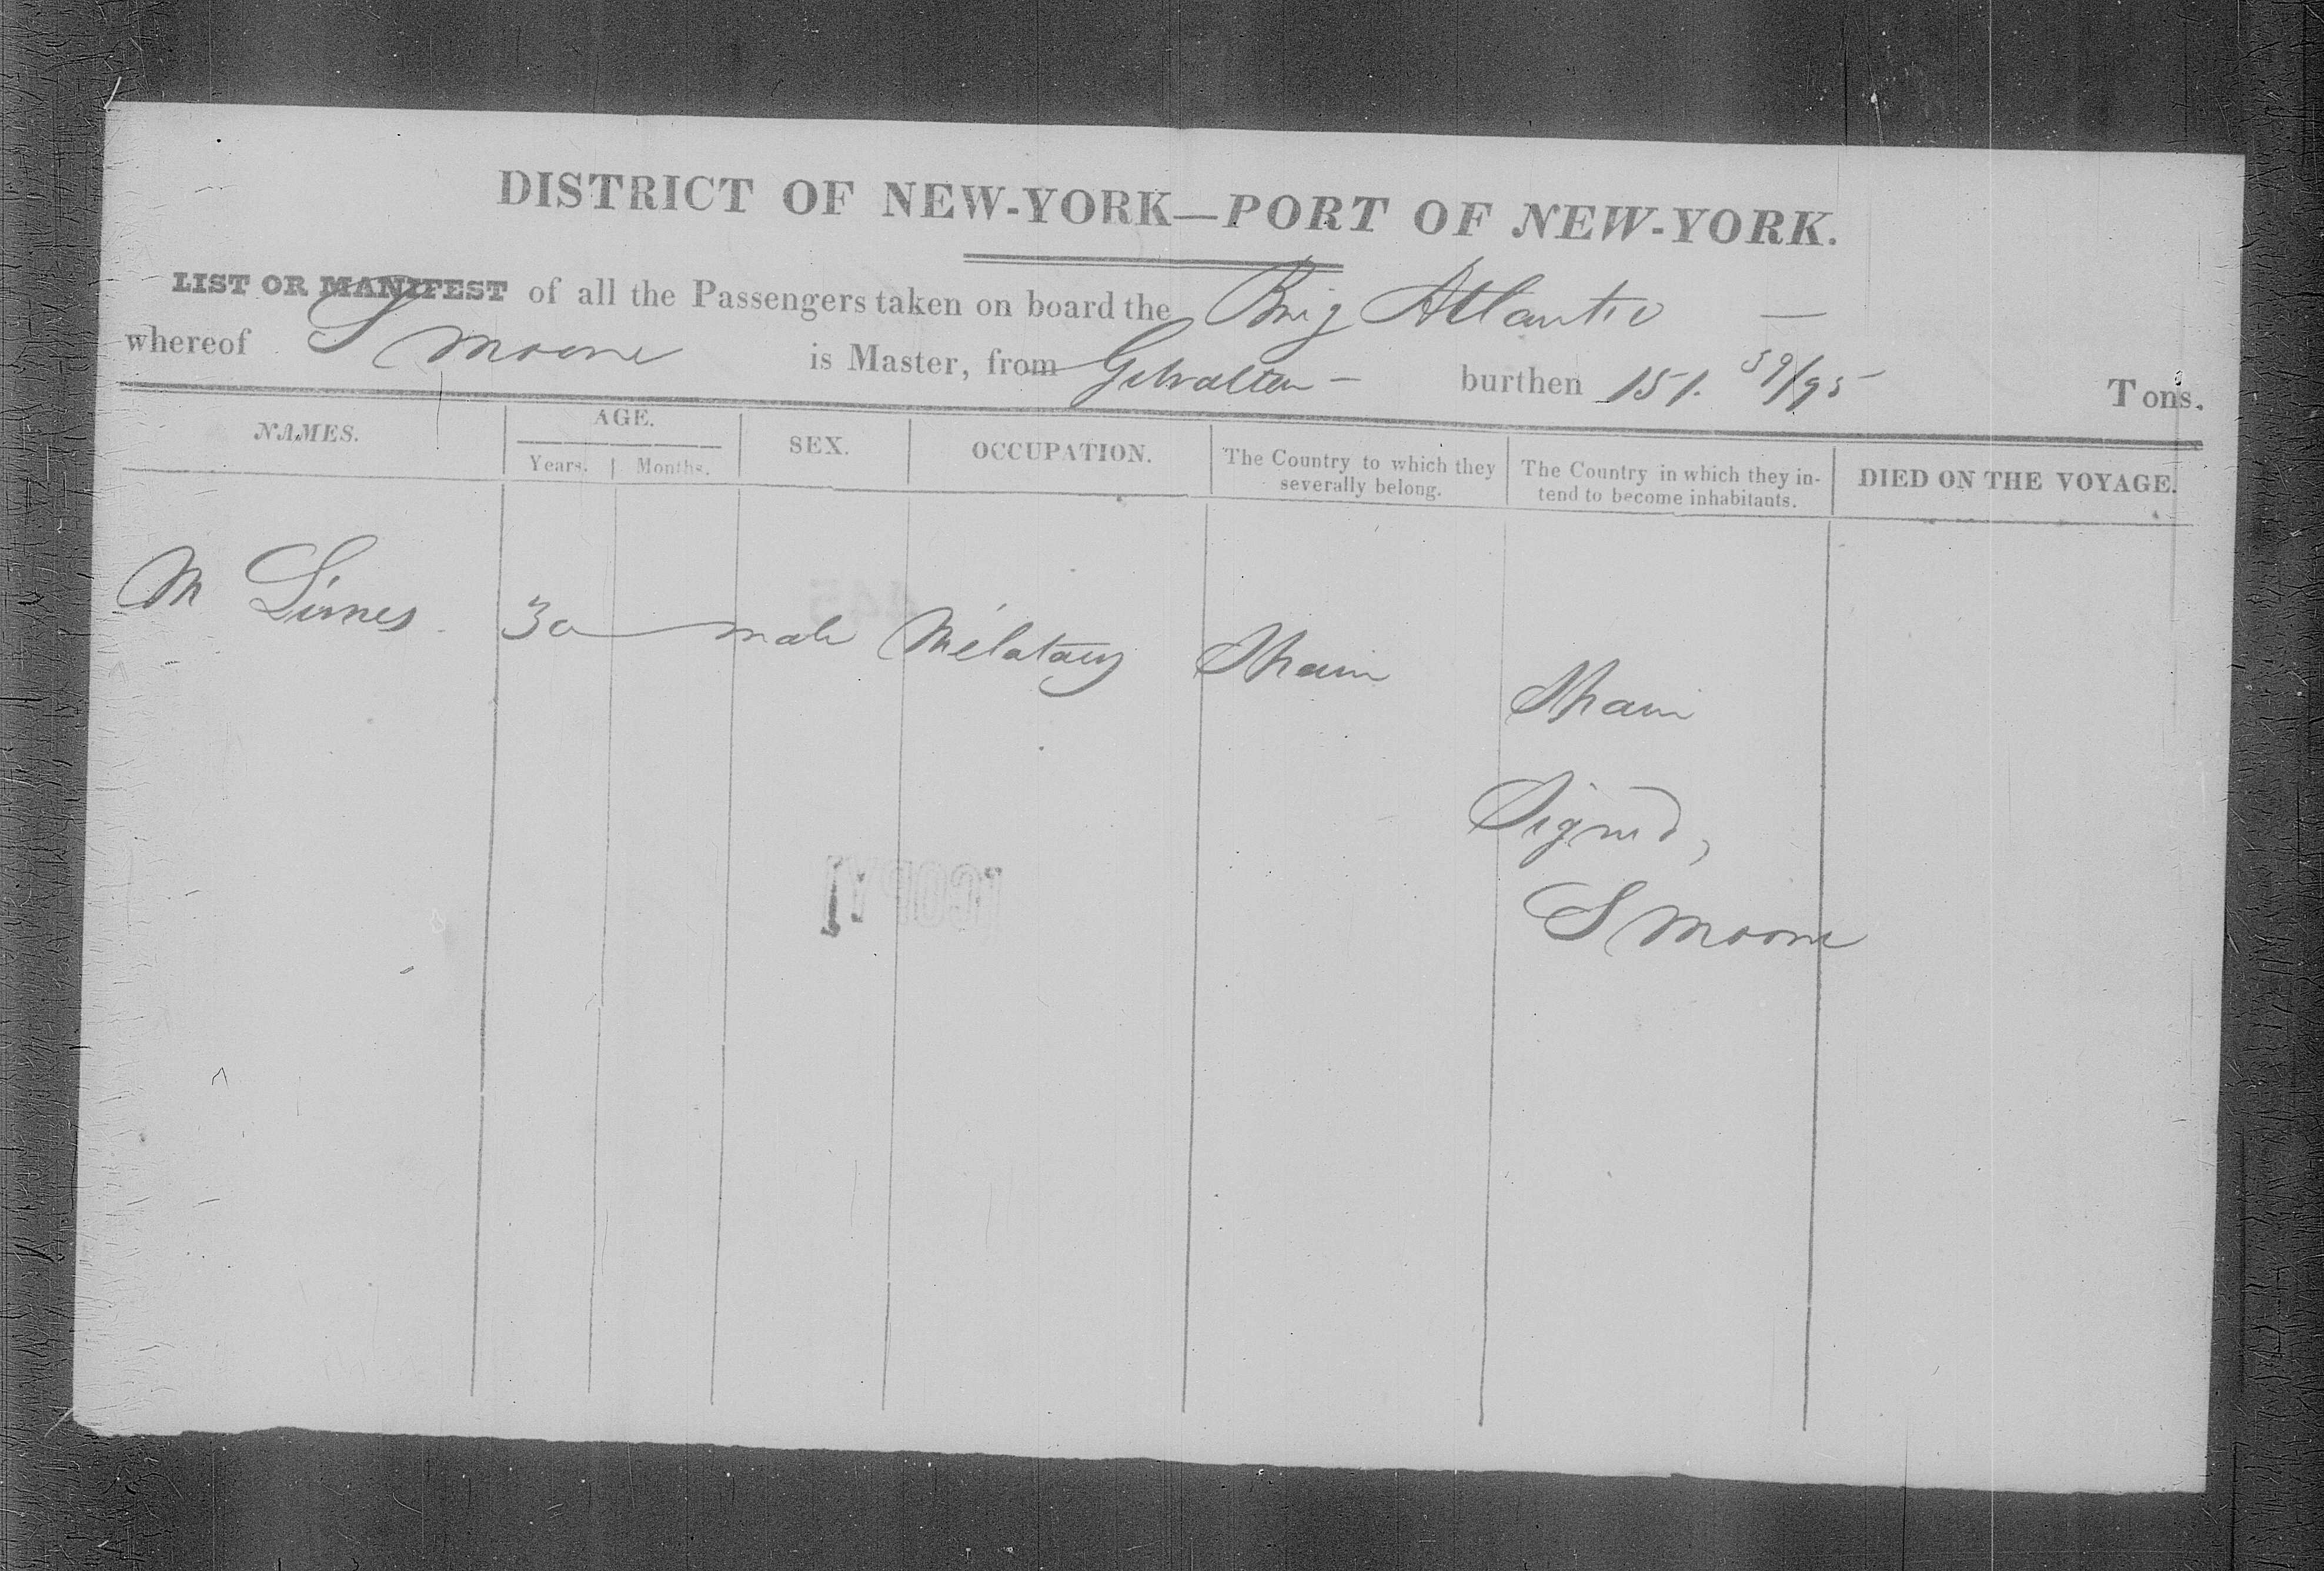 DISTRICT OF NEW-YORK—PORT OF NEW-YORK.
LIST OR MANIFEST of all the Passengers taken on board the Brig Atlantic —
whereof S Moore is Master, from Gibralter — burthen 151. 59/95 Tons.
NAMES. AGE. SEX. OCCUPATION. The Country to which they severally belong. The Country in which they intend to become inhabitants. DIED ON THE VOYAGE.
Years. Months.
M 30 male Melatary Spain Spain
Signed,
S Moore
445
[COPY]